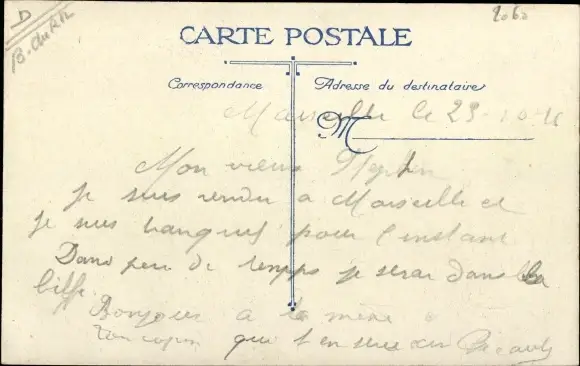 D
2060
CARTE POSTALE
Correspondance
Adresse du destinataire
M
Marseille le 23-10-
Mon vieux
je suis rendu a Marseille et
je suis tanquil pour l'instant
Dans peu de temps je serai dans la
biffe
Bonjour a ta mère
Ton copin qui t'en